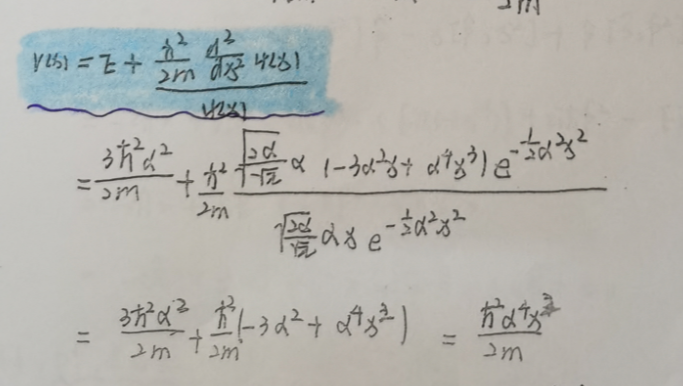 2m
V(x) = E + \frac{\frac{ħ^2}{2m} \frac{d^2}{dx^2} ψ(x)}{ψ(x)}
= \frac{3ħ^2α^2}{2m} + \frac{ħ^2}{2m} \frac{\sqrt{\frac{2α}{\sqrt{π}}} α (-3α^2x + α^4x^3) e^{-\frac{1}{2}α^2x^2}}{\sqrt{\frac{2α}{\sqrt{π}}} αx e^{-\frac{1}{2}α^2x^2}}
= \frac{3ħ^2α^2}{2m} + \frac{ħ^2}{2m} (-3α^2 + α^4x^2) = \frac{ħ^2α^4x^2}{2m}